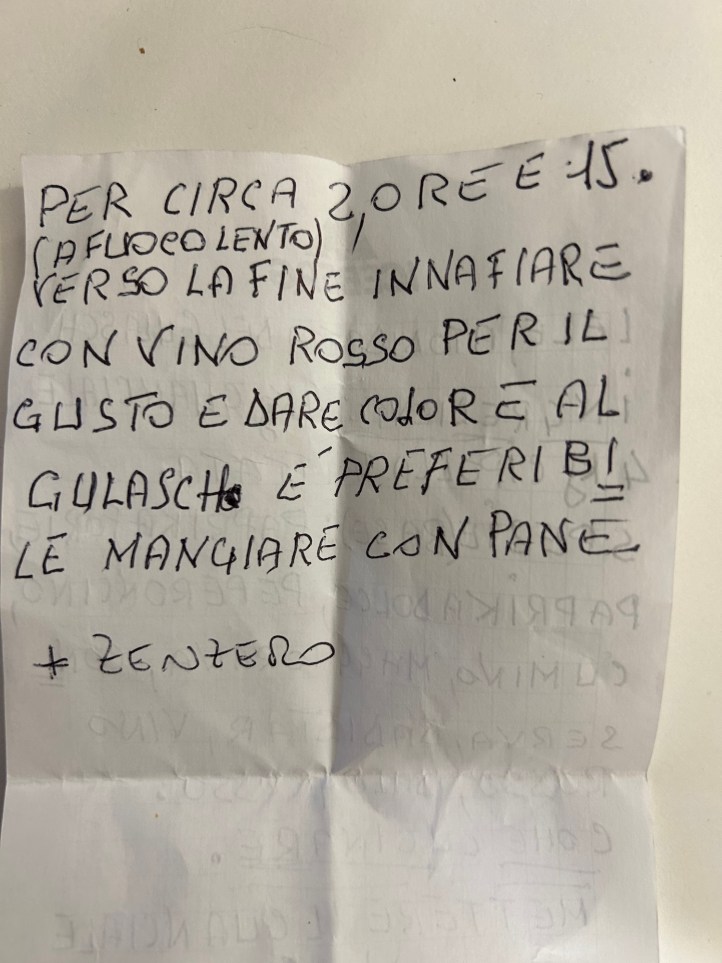 PER CIRCA 2,ORE E 15.
(A FUOCO LENTO)
VERSO LA FINE INNAFIARE
CON VINO ROSSO PER IL
GUSTO E DARE COLORE AL
GULASCH. E' PREFERIBI
LE MANGIARE CON PANE
+ ZENZERO